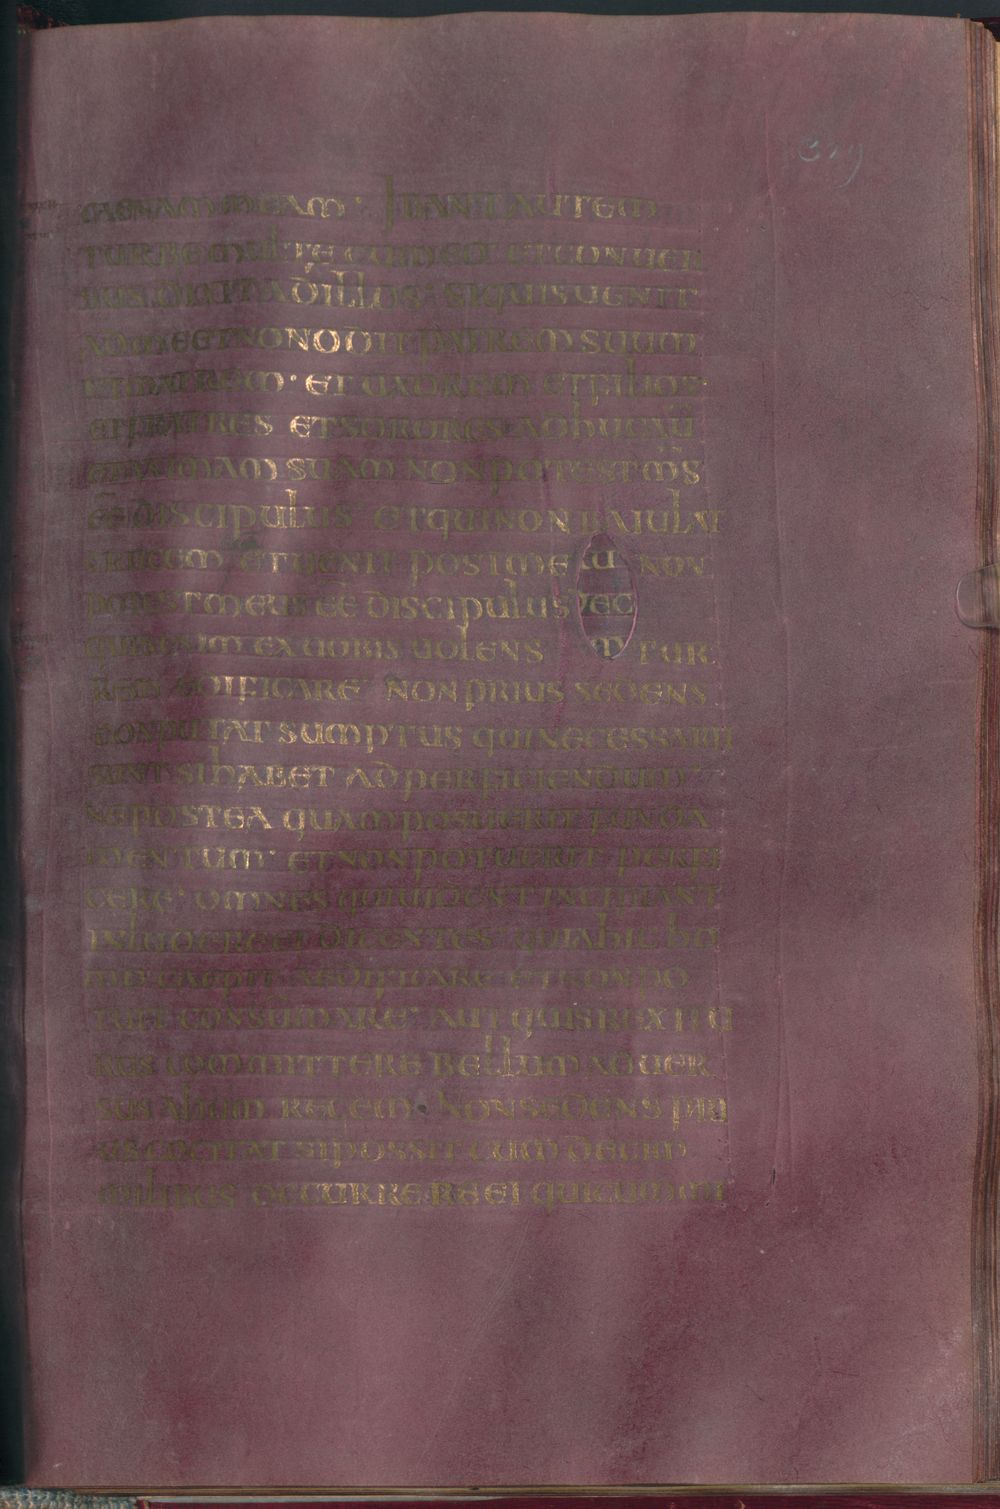 CAENAM MEAM · IBANT AUTEM
TURBE MULTE CUM EO · ET CONUER
SUS DIXIT AD ILLOS · SI QUIS UENIT
AD ME ET NON ODIT PATREM SUUM
ET MATREM · ET UXOREM ET FILIOS
ET FRATRES ET SORORES ADHUC AU
ET ANIMAM SUAM NON POTEST MS
EE DISCIPULUS ET QUI NON BAIULAT
CRUCEM ET UENIT POST ME NON
POTEST MEUS EE DISCIPULUS
QUIS ENIM EX UOBIS UOLENS TUR
REM AEDIFICARE NON PRIUS SEDENS
CONPUTAT SUMPTUS QUI NECESSARII
SUNT SI HABET AD PERFICIENDUM ·
NE POSTEA QUAM POSUERIT FUNDA
MENTUM · ET NON POTUERIT PERFI
CERE · OMNES QUI UIDENT INCIPIANT
INLUDERE EI DICENTES · QUIA HIC HO
MO CAEPIT AEDIFICARE ET NON PO
TUIT CONSUMMARE · AUT QUIS REX ITU
RUS COMMITTERE BELLUM ADUER
SUS ALIUM REGEM · NON SEDENS PRI
US COGITAT SI POSSIT CUM DECEM
MILIBUS OCCURRERE EI QUI CUM UI